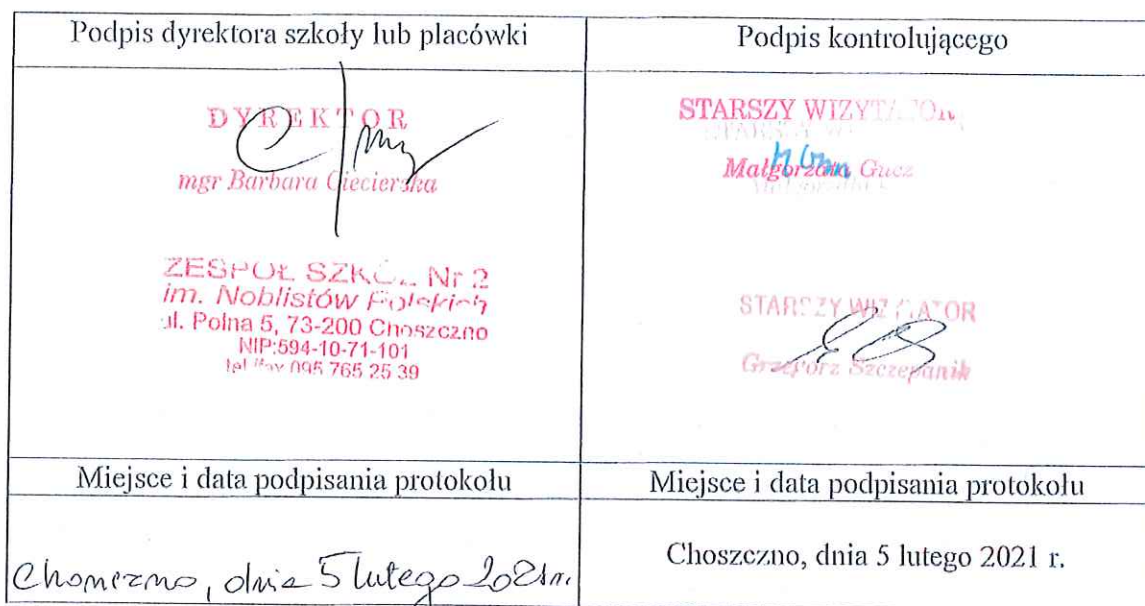 Podpis dyrektora szkoły lub placówki
Podpis kontrolującego
DYREKTOR
mgr Barbara Ciecierska
ZESPÓŁ SZKÓŁ Nr 2
im. Noblistów Polskich
ul. Polna 5, 73-200 Choszczno
NIP:594-10-71-101
tel./fax 095 765 25 39
STARSZY WIZYTATOR
STARSZY
Małgorzata Gucz
STARSZY WIZYTATOR
Grzegorz Szczepanik
Miejsce i data podpisania protokołu
Miejsce i data podpisania protokołu
Choszczno, dnia 5 lutego 2021 r.
Choszczno, dnia 5 lutego 2021 r.